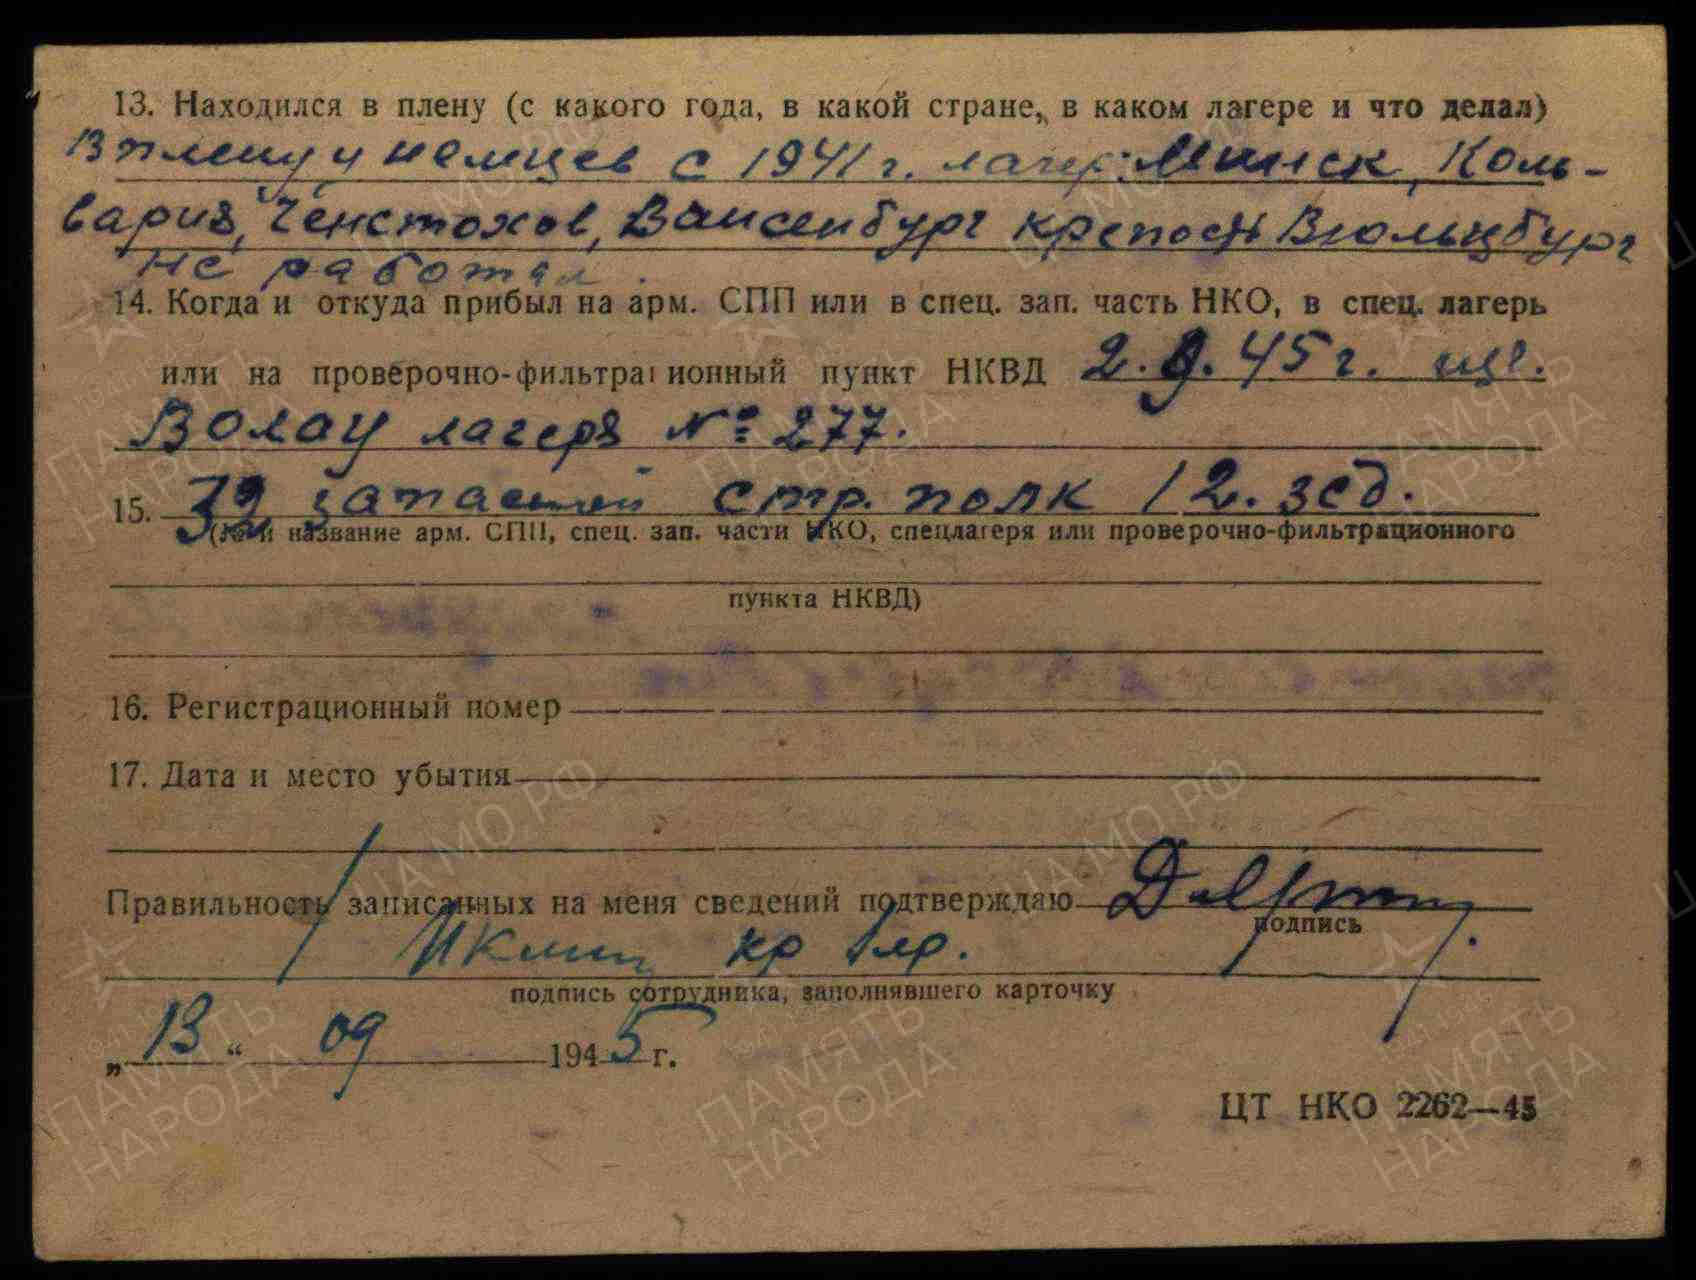 13. Находился в плену (с какого года, в какой стране, в каком лагере и что делал)
В плену у немцев с 1941 г. лагер: Минск, Коль-
вария, Ченстохов, Вайсенбург крепость Вюльцбург
не работал.
14. Когда и откуда прибыл на арм. СПП или в спец. зап. часть НКО, в спец. лагерь
или на проверочно-фильтрационный пункт НКВД 2.9.45 г. из г.
Волау лагеря № 277.
15. 32 запасной стр. полк 12. зсд.
(№ и название арм. СПП, спец. зап. части НКО, спецлагеря или проверочно-фильтрационного
пункта НКВД)
16. Регистрационный номер
17. Дата и место убытия
Правильность записанных на меня сведений подтверждаю
подпись
подпись сотрудника, заполнявшего карточку
„13“ 09 1945 г.
ЦТ НКО 2262—45
ПАМЯТЬ НАРОДА
ЦАМО РФ